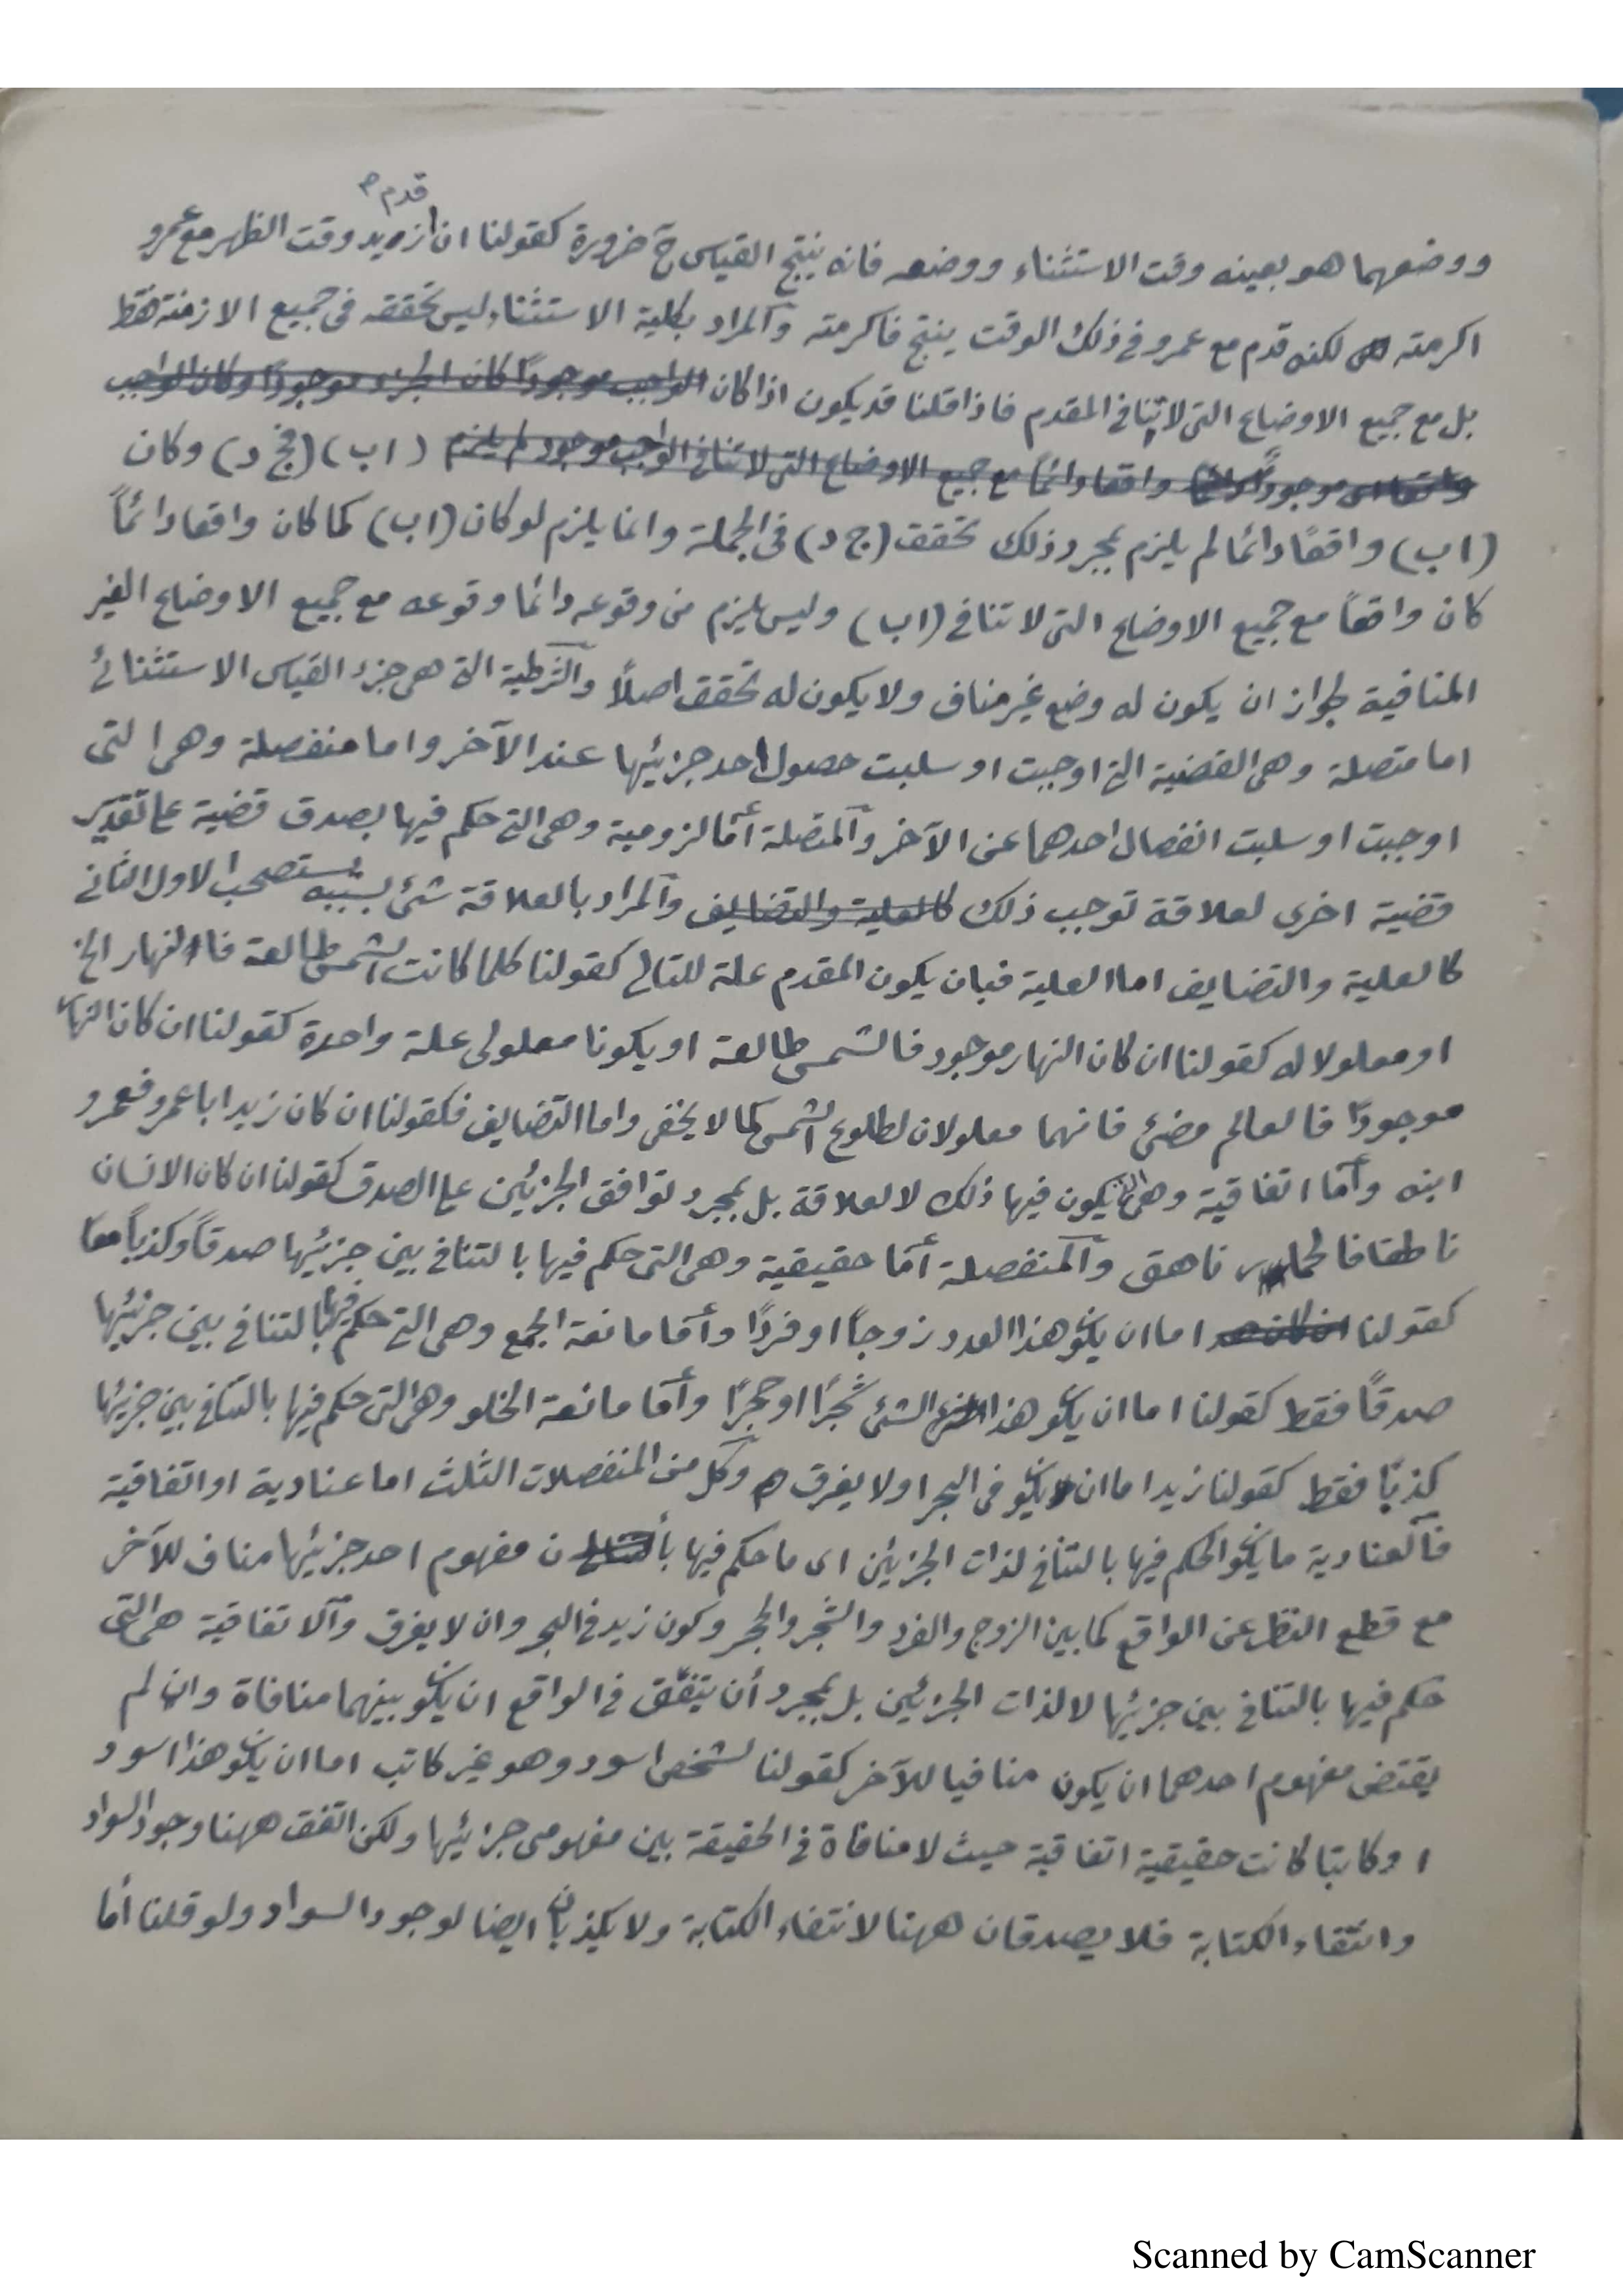 قدم صح
ووضعهما هو بعينه وقت الاستثناء ووضعه فانه ينتج القياس ح ضرورة كقولنا ان زيد وقت الظهر مع عمرو
اكرمته لكنه قدم مع عمرو فى ذلك الوقت ينتج فاكرمته والمراد بكلية الاستثناء ليس تحققه فى جميع الازمنة فقط
بل مع جميع الاوضاع التى لا تنافى المقدم فاذا قلنا قد يكون اذا كان الواجب موجودًا كان الجزء موجودًا وكان الواجب
موجودًا واقعا دائمًا مع جميع الاوضاع التى لا تنافى الواجب موجود لم يلزم (اب) (فج د) وكان
(اب) واقعًا دائما لم يلزم بمجرد ذلك تحقق (ج د) فى الجملة وانما يلزم لو كان (اب) كما كان واقعا دائمًا
كان واقعًا مع جميع الاوضاع التى لا تنافى (اب) وليس يلزم من وقوعه دائما وقوعه مع جميع الاوضاع الغير
المنافية لجواز ان يكون له وضع غير مناف ولا يكون له تحقق اصلاً والشرطية التى هى جزء القياس الاستثنائى
اما متصلة وهى القضية التى اوجبت او سلبت حصول احد جزئيها عند الآخر واما منفصلة وهى التى
اوجبت او سلبت انفصال احدهما عن الآخر والمتصلة أما لزومية وهى التى حكم فيها بصدق قضية على تقدير
قضية اخرى لعلاقة توجب ذلك كالعلية والتضايف والمراد بالعلاقة شئ بسببه يستصحب الاول الثانى
كالعلية والتضايف اما العلية فبان يكون المقدم علة للتالى كقولنا كلما كانت الشمس طالعة فالنهار الخ
او معلولا له كقولنا ان كان النهار موجود فالشمس طالعة او يكونا معلولى علة واحدة كقولنا ان كان النهار
موجودًا فالعالم مضئ فانهما معلولان لطلوع الشمس كما لا يخفى واما التضايف فكقولنا ان كان زيد ابا عمرو فعمرو
ابنه وأما اتفاقية وهى التى يكون فيها ذلك لا لعلاقة بل بمجرد توافق الجزئين على الصدق كقولنا ان كان الانسان
ناطقا فالحمار ناهق والمنفصلة أما حقيقية وهى التى حكم فيها بالتنافى بين جزئيها صدقًا وكذبًا معًا
كقولنا اما ان يكو هذا العدد زوجًا او فردًا وأما مانعة الجمع وهى التى حكم فيها بالتنافى بين جزئيها
صدقًا فقط كقولنا اما ان يكو هذا الشئ شجرًا او حجرًا وأما مانعة الخلو وهى التى حكم فيها بالتنافى بين جزئيها
كذبًا فقط كقولنا زيد اما ان يكو فى البحر او لا يغرق وكل من المنفصلات الثلث اما عنادية او اتفاقية
فالعنادية ما يكو الحكم فيها بالتنافى لذات الجزئين اى ما حكم فيها بأن مفهوم احد جزئيها مناف للآخر
مع قطع النظر عن الواقع كما بين الزوج والفرد والشجر والحجر وكون زيد فى البحر وان لا يغرق والاتفاقية هى التى
حكم فيها بالتنافى بين جزئيها لا لذات الجزئين بل بمجرد أن يتفق فى الواقع ان يكو بينهما منافاة وان لم
يقتضى مفهوم احدهما ان يكون منافيا للآخر كقولنا لشخص اسود وهو غير كاتب اما ان يكو هذا اسود
او كاتبا كانت حقيقية اتفاقية حيث لا منافاة فى الحقيقة بين مفهومى جزئيها ولكن اتفق ههنا وجود السواد
وانتفاء الكتابة فلا يصدقان ههنا لانتفاء الكتابة ولا يكذبان ايضا لوجود السواد ولو قلنا أما
Scanned by CamScanner